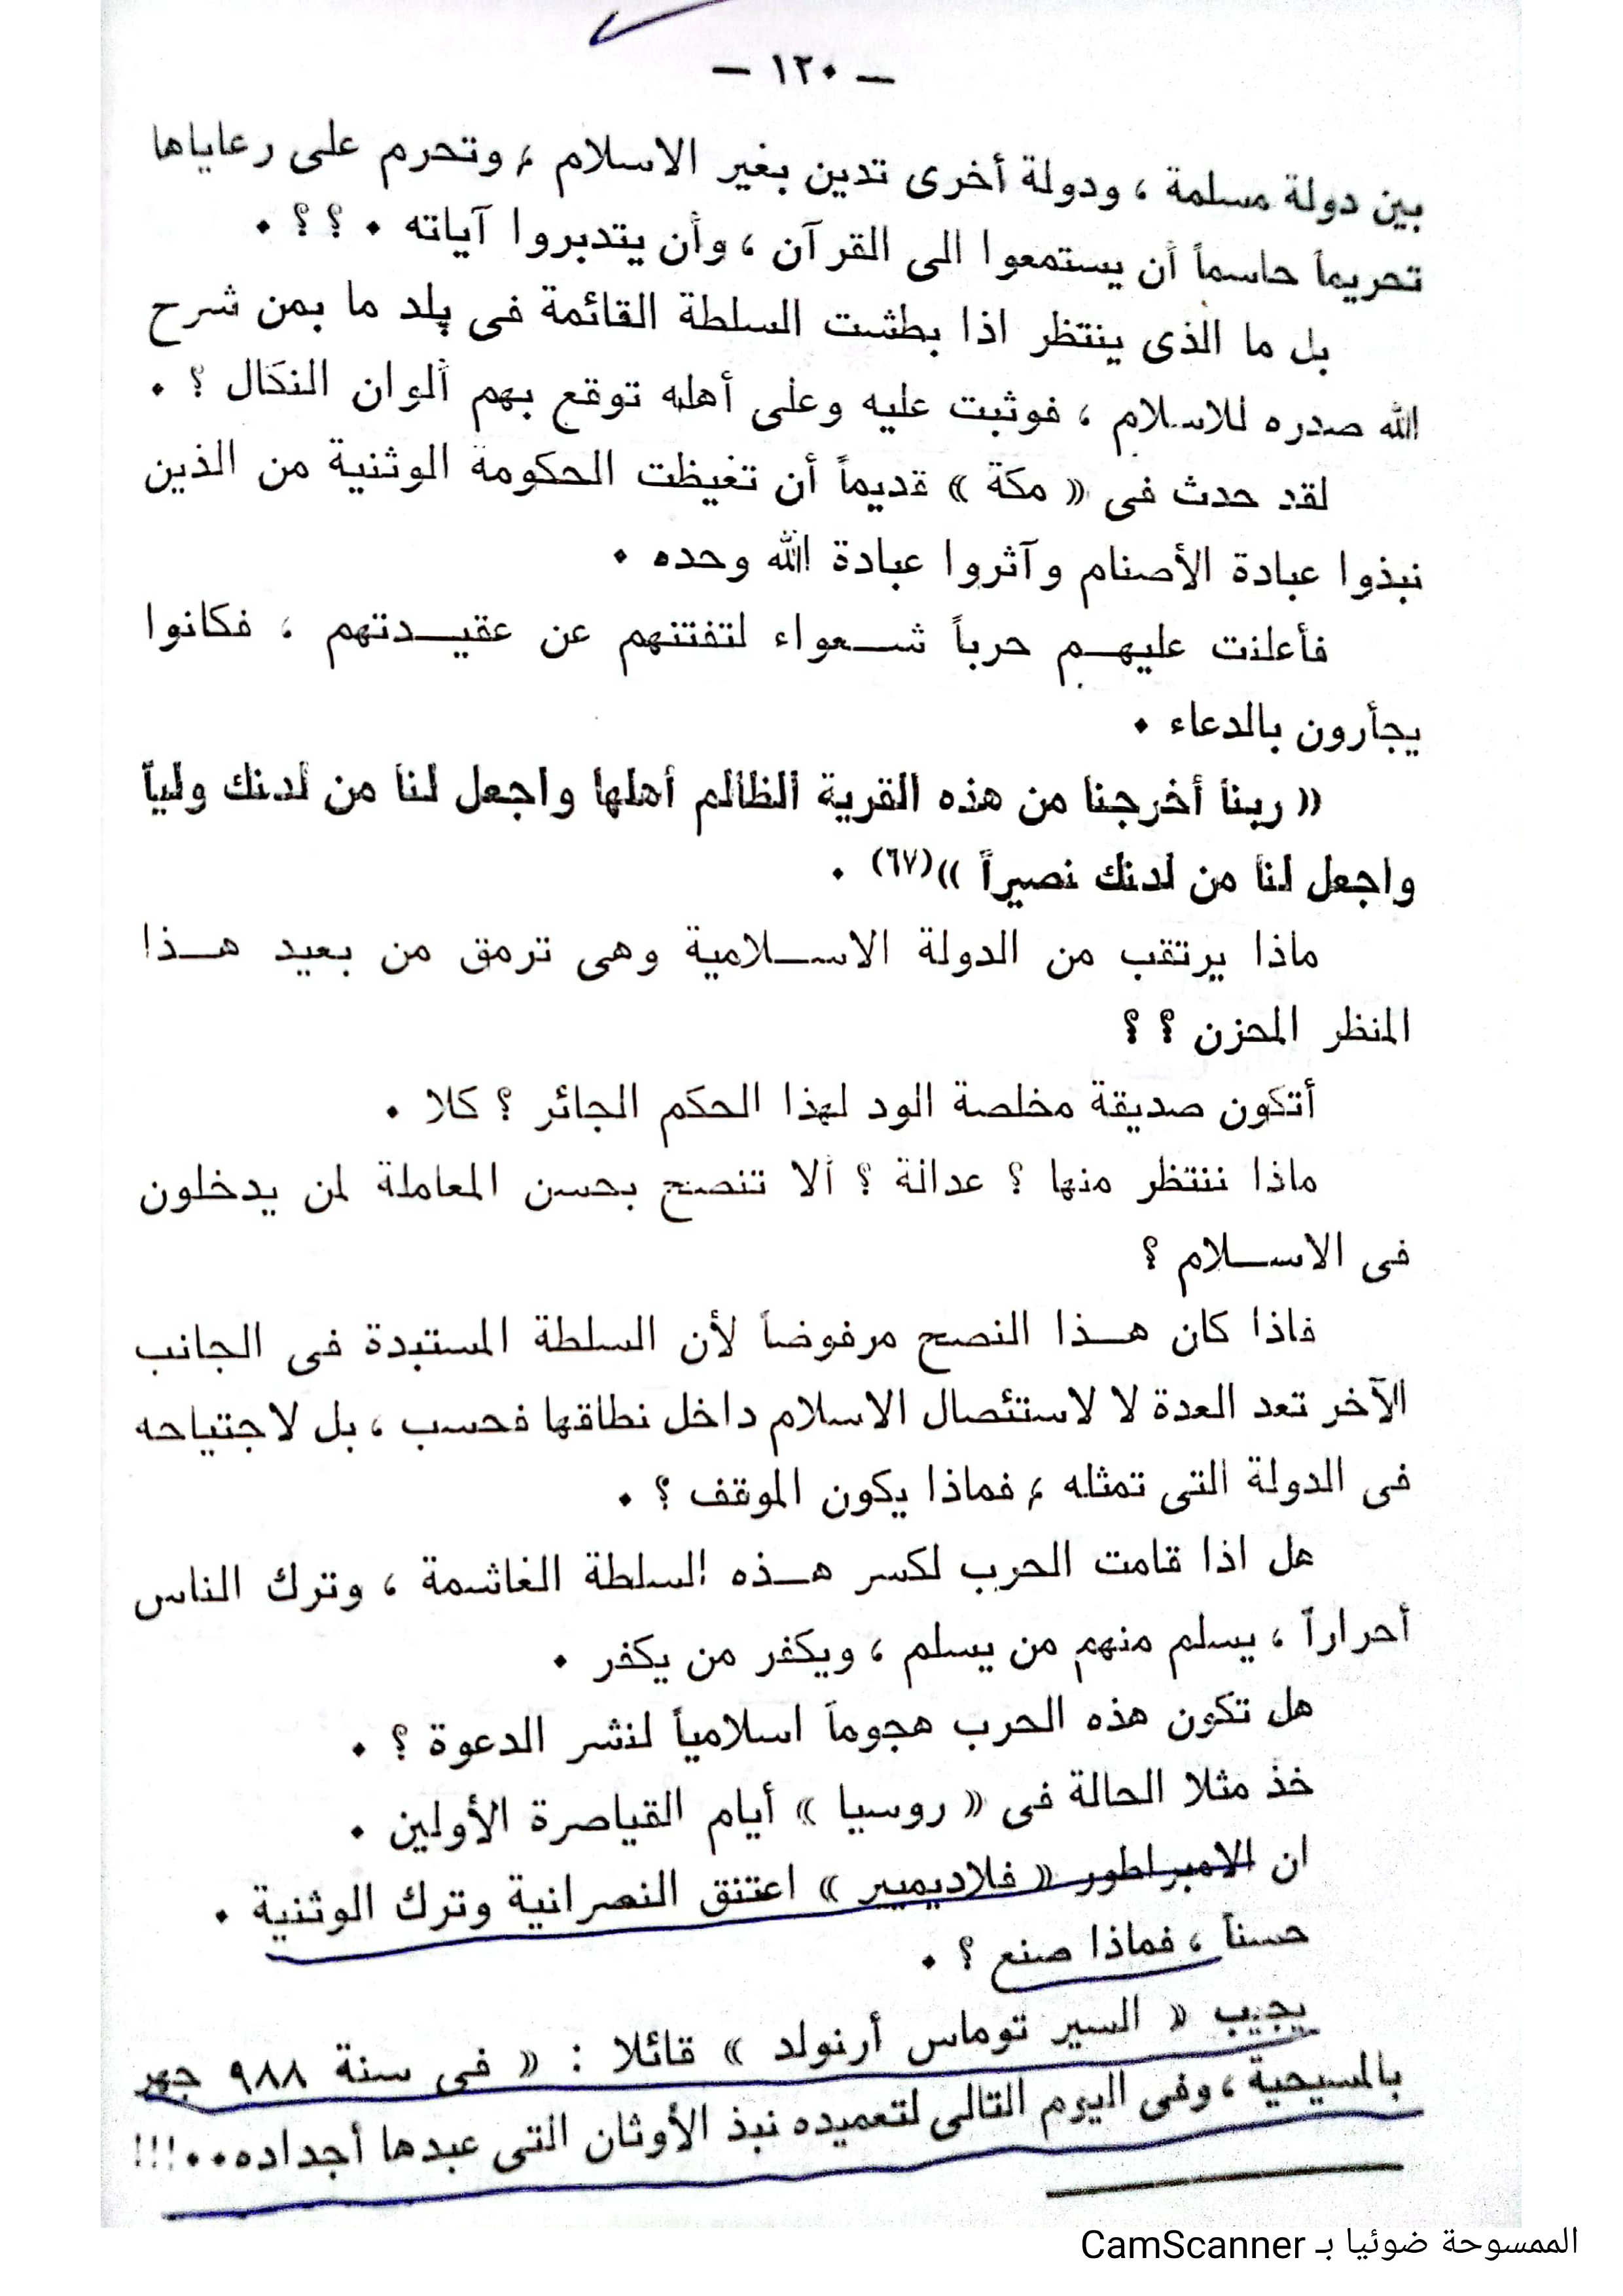 — ١٢٠ —
بين دولة مسلمة ، ودولة أخرى تدين بغير الاسلام ، وتحرم على رعاياها
تحريماً حاسماً أن يستمعوا الى القرآن ، وأن يتدبروا آياته ٠ ؟ ؟ ٠
بل ما الذى ينتظر اذا بطشت السلطة القائمة فى بلد ما بمن شرح
الله صدره للاسلام ، فوثبت عليه وعلى أهله توقع بهم ألوان النكال ؟ ٠
لقد حدث فى « مكة » قديماً أن تغيظت الحكومة الوثنية من الذين
نبذوا عبادة الأصنام وآثروا عبادة الله وحده ٠
فأعلنت عليهــم حرباً شــعواء لتفتنهم عن عقيــدتهم ، فكانوا
يجأرون بالدعاء ٠
« ربنا أخرجنا من هذه القرية الظالم أهلها واجعل لنا من لدنك ولياً
واجعل لنا من لدنك نصيراً »(٦٧) ٠
ماذا يرتقب من الدولة الاســلامية وهى ترمق من بعيد هــذا
المنظر المحزن ؟ ؟
أتكون صديقة مخلصة الود لهذا الحكم الجائر ؟ كلا ٠
ماذا ننتظر منها ؟ عدالة ؟ ألا تنصح بحسن المعاملة لمن يدخلون
فى الاســلام ؟
فاذا كان هــذا النصح مرفوضاً لأن السلطة المستبدة فى الجانب
الآخر تعد العدة لا لاستئصال الاسلام داخل نطاقها فحسب ، بل لاجتياحه
فى الدولة التى تمثله ، فماذا يكون الموقف ؟ ٠
هل اذا قامت الحرب لكسر هــذه السلطة الغاشمة ، وترك الناس
أحراراً ، يسلم منهم من يسلم ، ويكفر من يكفر ٠
هل تكون هذه الحرب هجوماً اسلامياً لنشر الدعوة ؟ ٠
خذ مثلا الحالة فى « روسيا » أيام القياصرة الأولين ٠
ان الامبراطور « فلاديميير » اعتنق النصرانية وترك الوثنية ٠
حسناً ، فماذا صنع ؟ ٠
يجيب « السير توماس أرنولد » قائلا : « فى سنة ٩٨٨ جهر
بالمسيحية ، وفى اليوم التالى لتعميده نبذ الأوثان التى عبدها أجداده٠٠!!!
الممسوحة ضوئيا بـ CamScanner